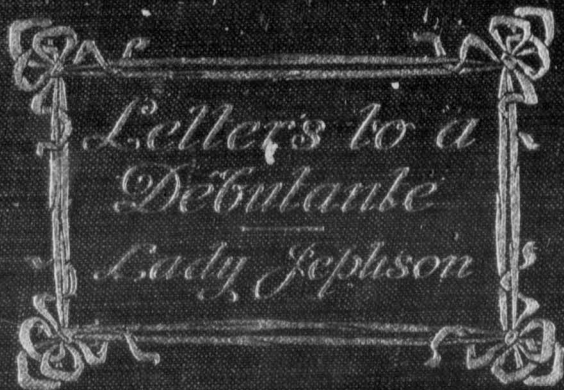 Letters to a
Débutante
Lady Jephson